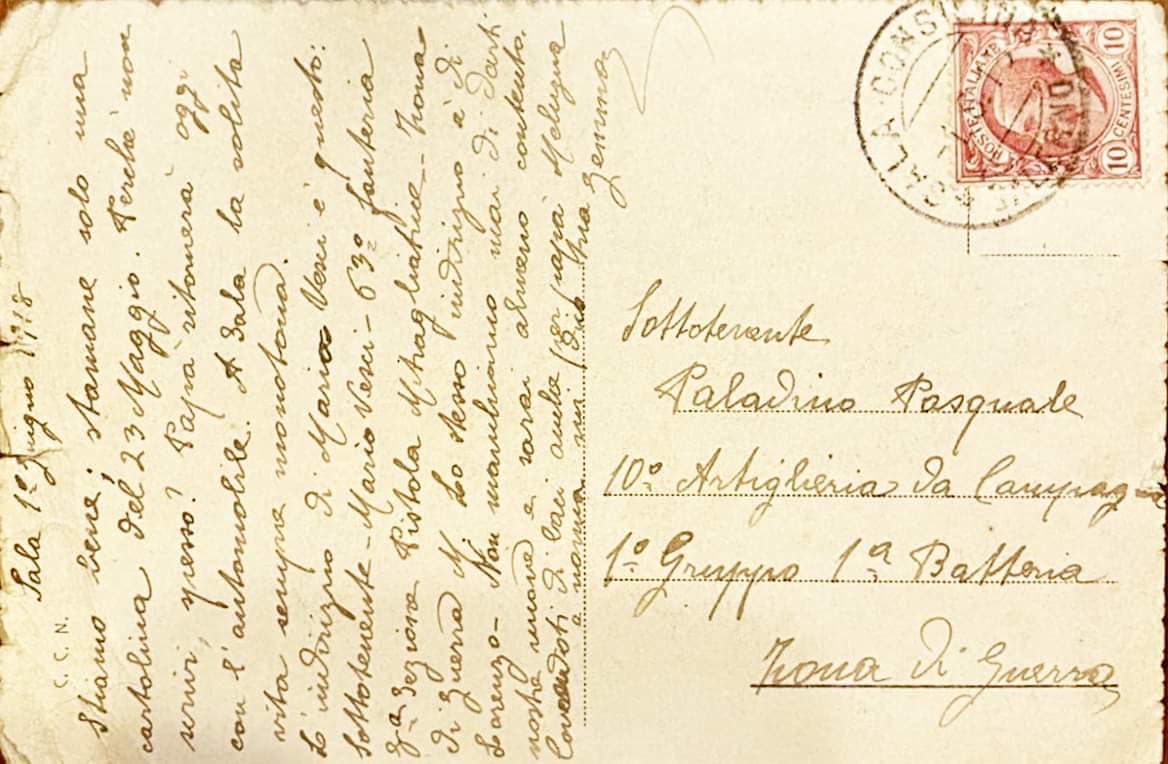 Sala 1° giugno 1918
Stiamo bene; stamane solo una
cartolina del 23 Maggio. Perchè non
scrivi spesso? Papà ritornerà oggi
con l'automobile. A Sala la solita
vita sempre monotona.
L'indirizzo di Mario Vesci è questo:
Sottotenente - Mario Vesci - 63° fanteria
Sezione Pistola Mitragliatrice - Zona
di guerra. Lo stesso indirizzo è di
Lorenzo - Non manchiamo mai di darti
nostre nuove e sarai almeno contento.
di baci anche per papà
e mamma mi dico tua
Gemma
C. C. N.
SALA CONSILINA
POSTE ITALIANE
10 CENTESIMI 10
Sottotenente
Paladino Pasquale
10° Artiglieria da Campagna
1° Gruppo 1ª Batteria
Zona di Guerra